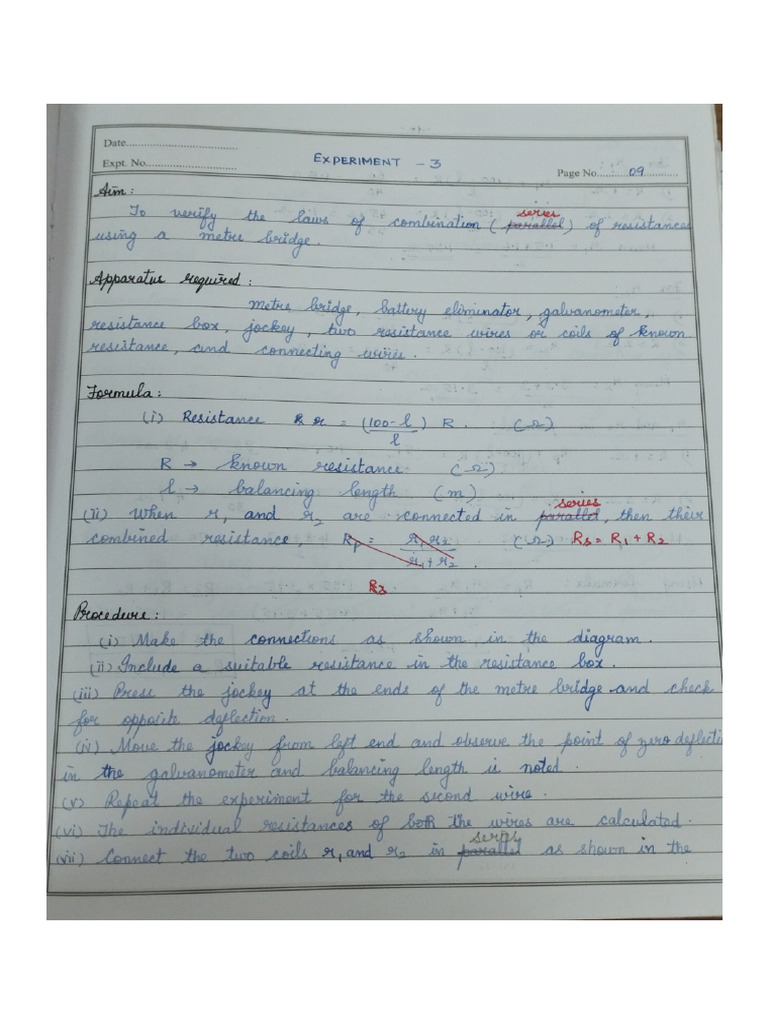 Date..................................
Expt. No............................
EXPERIMENT - 3
Page No......... 09 ...........
Aim:
series
To verify the laws of combination (parallel) of resistances
using a metre bridge.
Apparatus required:
Metre bridge, battery eliminator, galvanometer,
resistance box, jockey, two resistance wires or coils of known
resistance, and connecting wire.
Formula:
(i) Resistance r = (100-l / l) R. (Ω)
R → known resistance (Ω)
l → balancing length (m)
series
(ii) When r1 and r2 are connected in parallel, then their
combined resistance, Rp = r1 r2 / r1 + r2. (Ω) Rs = R1 + R2
Rs
Procedure:
(i) Make the connections as shown in the diagram.
(ii) Include a suitable resistance in the resistance box.
(iii) Press the jockey at the ends of the metre bridge and check
for opposite deflection.
(iv) Move the jockey from left end and observe the point of zero deflectio
in the galvanometer and balancing length is noted.
(v) Repeat the experiment for the second wire.
(vi) The individual resistances of both the wires are calculated.
series
(vii) Connect the two coils r1 and r2 in parallel as shown in the